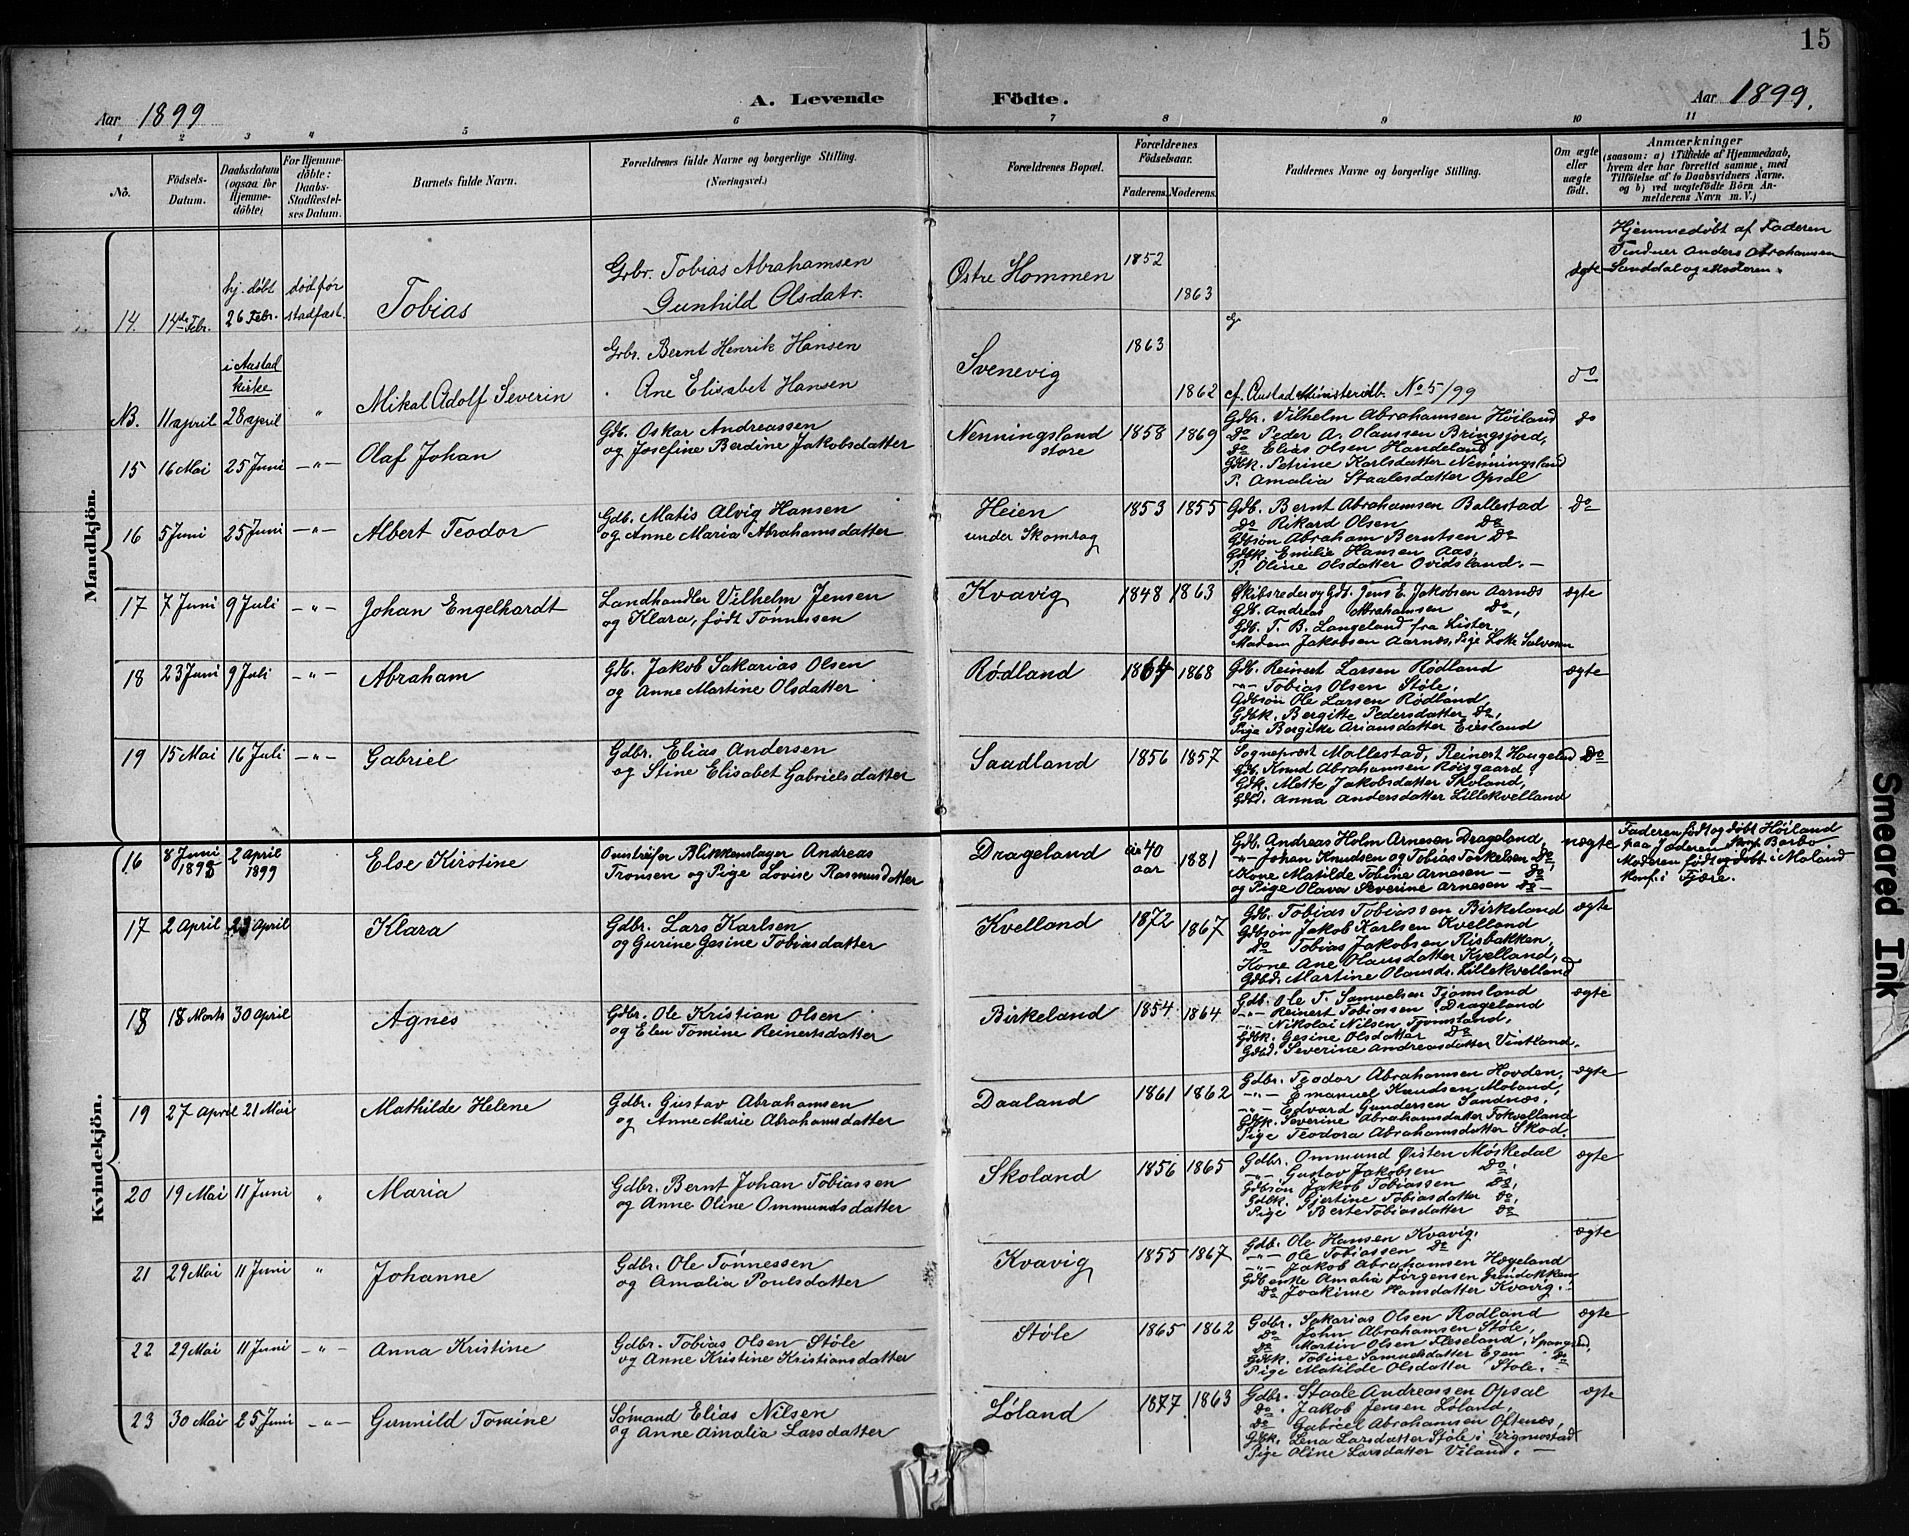 15
Aar 1899
A. Levende Födte.
Aar 1899.
1 2 3 4 5 6 7 8 9 10 11
No.
Födsels-Datum.
Daabsdatum (ogsaa for Hjemme-döbte)
For Hjemme-döbte: Daabs-Stadfæstel-ses Datum.
Barnets fulde Navn.
Forældrenes fulde Navne og borgerlige Stilling. (Næringsvei.)
Forældrenes Bopæl.
Forældrenes Födselsaar.
Faderens. Moderens.
Faddernes Navne og borgerlige Stilling.
Om ægte eller uægte födt.
Anmærkninger
(saasom: a) i Tilfælde af Hjemmedaab,
hvem der har forrettet samme, med
Tilföielse af to Daabsvidners Navne.
og b) ved uægtefödte Börn An-
melderens Navn m. V.)
Mandkjön.
14 14de Febr. hj. døbt 26 Febr. død før stadfæst. Tobias
Grbr. Tobias Abrahamsen
Gunhild Olsdatr.
Østre Hommen 1852 1863 ægte
Hjemmedøbt af Faderen
Vidner Anders Abrahamsen
Sanddal og Moderen.
NB. 11 april i Austad kirke 28 april " Mikal Adolf Severin
Grbr. Bernt Henrik Hansen
Ane Elisabet Hansen
Svenevig 1863 1862 cf. Austad Ministerialb. No 5/99 do
15 16 Mai 25 Juni -"- Olaf Johan
Gdb. Oskar Andreassen
og Josefine Berdine Jakobsdatter
Nenningsland store 1858 1869
Gdbr. Vilhelm Abrahamsen Høiland do
Do Peder A. Olaussen Bringsjord,
Do Elias Olsen Handeland,
Gdbk. Petrine Karlsdatter Nenningsland
P. Amalia Staalesdatter Opsal
16 5 Juni 25 Juni -"- Albert Teodor
Gdb. Matis Alvig Hansen
og Anne Maria Abrahamsdatter
Heien under Skomrag 1853 1855
Gdb. Bernt Abrahamsen Ballestad Do
Do Rikard Olsen Do
Gdbsøn Abraham Berntsen Do
Gdbk. Emilie Hansen Aas,
P. Oline Olsdatter Ovidsland. -
17 7 Juni 9 Juli -"- Johan Engelhardt
Landhandler Vilhelm Jensen
og Klara, født Tønnessen
Kvavig 1848 1863
Skibsreder og Gdb. Jens E. Jakobsen Aarnæs ægte
Gdb. Andreas Abrahamsen Do,
Gdb. T. B. Langeland fra Lister,
Madam Jakobsen Aarnæs, Pige Lotte Salvesen
18 23 Juni 9 Juli -"- Abraham
Gdb. Jakob Sakarias Olsen
og Anne Martine Olsdatter
Rødland 1864 1868
Gdb. Reinert Larsen Rødland ægte
-"- Tobias Olsen Støle,
Gdbsøn Ole Larsen Rødland
Gdbk. Bergitte Pedersdatter Do,
Pige Bergitte Ariansdatter Eiesland
19 15 Mai 16 Juli -"- Gabriel
Gdbr. Elias Andersen
og Stine Elisabet Gabrielsdatter
Saadland 1856 1857
Sogneprest Mollestad, Reinert Haugeland Do
Gdb. Knud Abrahamsen Røisgaard,
Gdk. Mette Jakobsdatter Skoland,
Gdbd. Anna Andersdatter Lillekvelland
Kvindekjön.
16 8 Juni 1898 2 April 1899 Else Kirstine
Omstreifer Blikkenslager Andreas
Tronsen og Pige Lovise Rasmusdatter
Drageland ca 40 aar 1881
Gdb. Andreas Holm Arnesen Drageland, uægte
-"- Johan Knudsen og Tobias Torkelsen Do,
Kone Matilde Tobine Arnesen - Do
og Pige Olava Severine Arnesen Do -
Faderen født og døbt Høiland
paa Jæderen Konf. Barbo
Moderen født og døbt i Moland
konf. i Fjære.
17 2 April 23 April Klara
Gdbr. Lars Karlsen
og Gurine Gesine Tobiasdatter
Kvelland 1872 1867
Gdb. Tobias Tobiassen Birkeland ægte
Gdbsøn Jakob Karlsen Kvelland
Do Tobias Jakobsen Risbakken,
Kone Ane Olausdatter Kvelland,
Gdbd. Martine Olausd. Lillekvelland
18 18 Marts 30 April Agnes
Gdbr. Ole Kristian Olsen
og Elen Tomine Reinertsdatter
Birkeland 1854 1864
Gdb. Ole T. Samuelsen Tjomsland ægte
-"- Reinert Tobiassen Drageland
-"- Nikolai Nilsen Tjomsland,
Gdbk. Gesine Olsdatter Do
Gdbd. Severine Andreasdatter Vintland.
19 27 April 21 Mai Mathilde Helene
Gdbr. Gustav Abrahamsen
og Anne Marie Abrahamsdatter
Daaland 1861 1862
Gdbr. Teodor Abrahamsen Hovden, ægte
-"- Emanuel Knudsen Moland,
-"- Edvard Gundersen Sandnæs,
Gdbk. Severine Abrahamsdatter Fokvelland
Pige Teodora Abrahamsdatter Skod.
20 19 Mai 11 Juni " Maria
Gdbr. Bernt Johan Tobiassen
og Anne Oline Ommundsdatter
Skoland 1856 1865
Gdbr. Ommund Østen Møskedal ægte
-"- Gustav Jakobsen Do,
Gdbsøn Jakob Tobiassen Do,
Gdbk. Gjertine Tobiasdatter Do,
Pige Berte Tobiasdatter Do
21 29 Mai 11 Juni " Johanne
Gdbr. Ole Tønnessen
og Amalia Poulsdatter
Kvavig 1855 1867
Gdb. Ole Hansen Kvavig. ægte
-"- Ole Tobiassen Do
-"- Jakob Abrahamsen Hægeland
Gdb enke Amalia Jørgensen
Do Joakime Hansdatter Kvavig.
22 29 Mai 11 Juni -"- Anna Kristine
Gdbr. Tobias Olsen Støle
og Anne Kristine Kristiansdatter
Støle 1865 1862
Gdbr. Sakarias Olsen Rødland ægte
Do John Abrahamsen Støle,
Do Martin Olsen Fleseland,
Gdbk. Tobine Samuelsdatter Egen Do
Pige Matilde Olsdatter Støle.
23 30 Mai 25 Juni -"- Gunnild Tomine
Sømand Elias Nilsen
og Anne Amalia Larsdatter
Løland 1877 1863
Gdbr. Staale Andreassen Opsal ægte
Do. Jakob Jensen Løland,
Do Gabriel Abrahamsen Oftenæs,
Gdbk. Lena Larsdatter Støle i Vigmostad
Pige Oline Larsdatter Viland. -
Smeared Ink